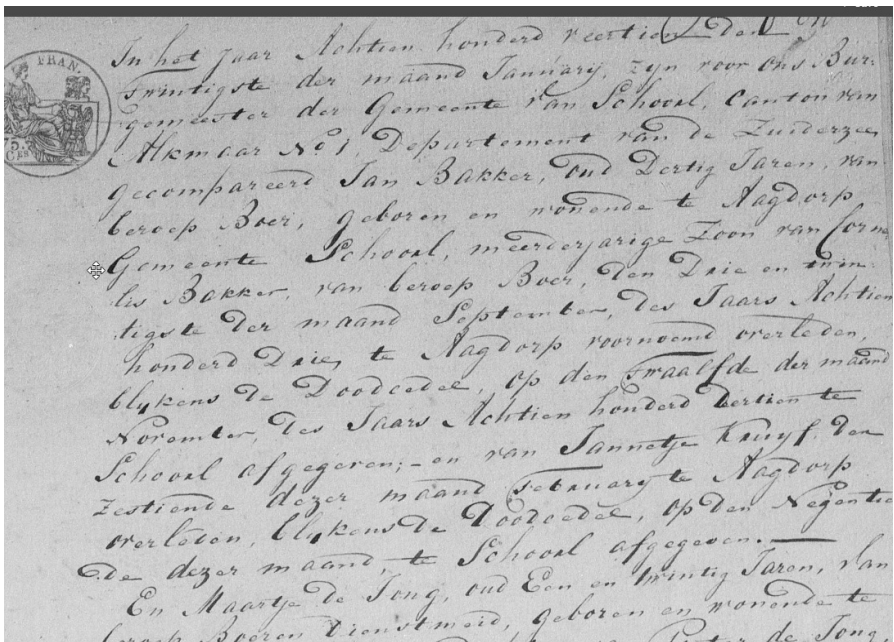 FRAN.
75.
CES
In het Jaar Achtien honderd veertien, den
Twintigste der maand January, zyn voor ons Bur=
gemeester der Gemeente van Schoorl, Canton van
Alkmaar No 1, Departement van de Zuiderzee,
gecompareerd Jan Bakker, oud Dertig Jaren, van
beroep Boer, geboren en wonende te Aagdorp
Gemeente Schoorl, meerderjarige Zoon van Corne
lis Bakker, van beroep Boer, den Drie en twin
tigste der maand September, des Jaars Achtien
honderd Drie, te Aagdorp voornoemd overleden,
blykens de Doodcedel, op den Twaalfde der maand
November, des Jaars Achtien honderd dertien te
Schoorl afgegeven; - en van Jannetje Kruyf, den
Zestiende dezer maand February te Aagdorp
overleden, blykens de Doodcedel, op den Negentien
de dezer maand, te Schoorl afgegeven. —
En Maartje de Jong, oud Een en twintig Jaren, van
beroep Boeren Dienstmeid, geboren en wonende te
Pieter de Jong